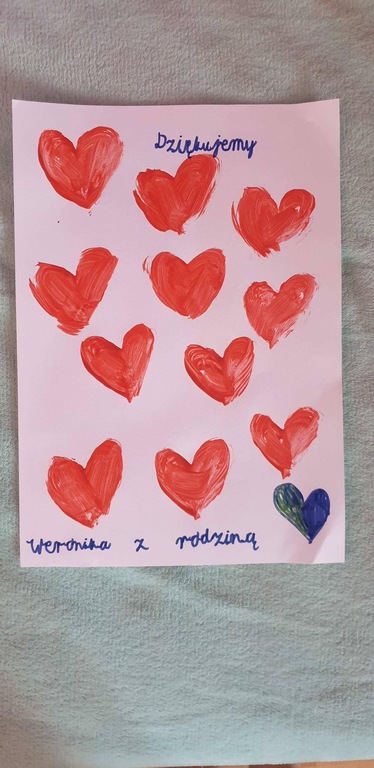 Dziękujemy
Weronika z rodziną